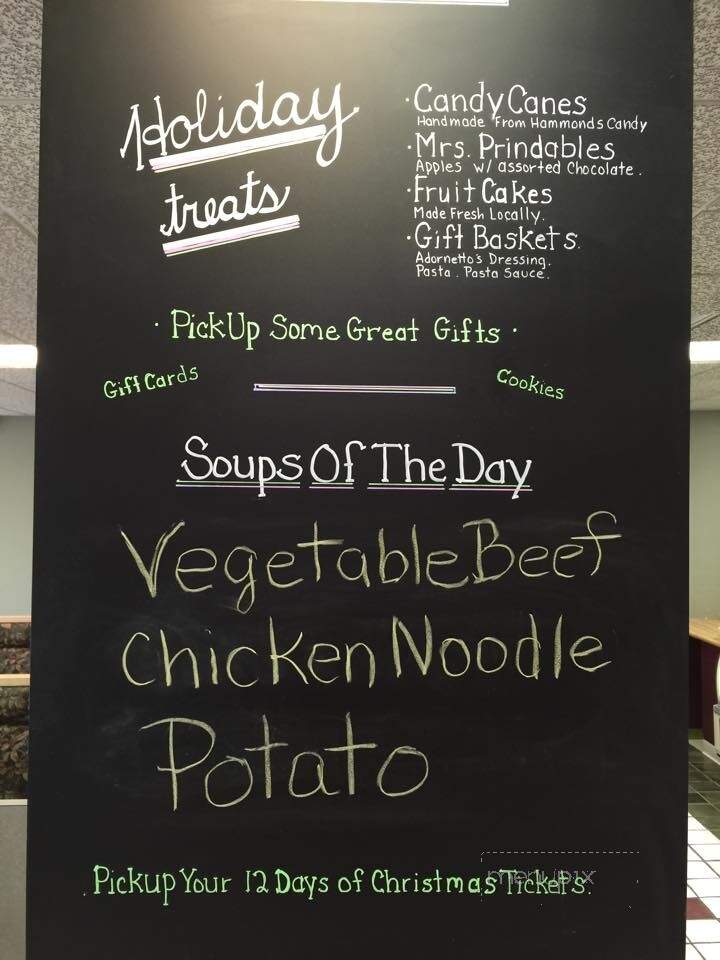 Holiday
treats
· Candy Canes
Handmade From Hammonds Candy
· Mrs. Prindables
Apples w/ assorted Chocolate.
· Fruit Cakes
Made Fresh Locally.
· Gift Baskets.
Adornetto's Dressing.
Pasta. Pasta Sauce.
· PickUp Some Great Gifts ·
Gift Cards
Cookies
Soups Of The Day
Vegetable Beef
Chicken Noodle
Potato
Pickup Your 12 Days of Christmas Tickets.
menupix